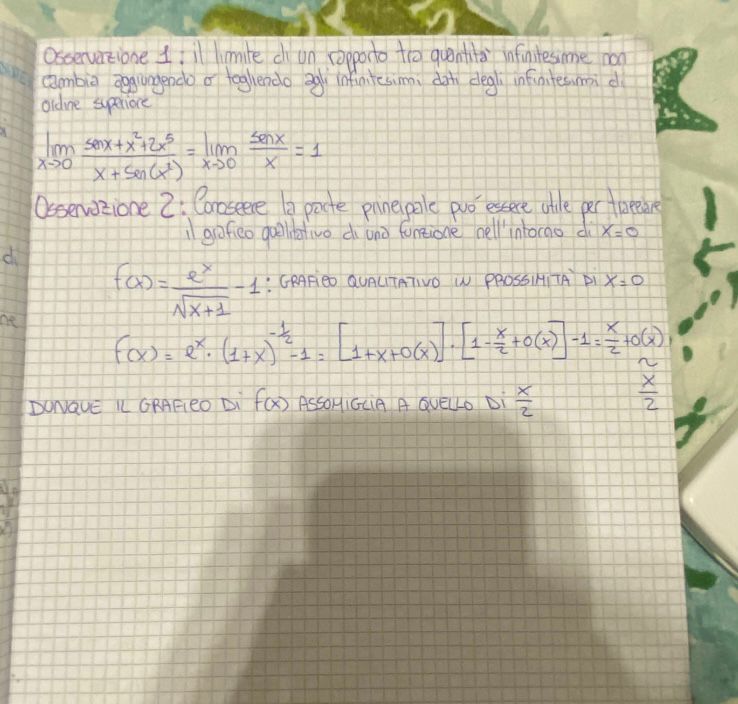 Osservazione 1: il limite di un rapporto tra quantità infinitesime non
cambia aggiungendo o togliendo agli infinitesimi dati degli infinitesimi di
ordine superiore
lim x→0 (senx+x²+2x⁵)/(x+sen(x²)) = lim x→0 senx/x = 1
Osservazione 2: Conoscere la parte principale può essere utile per tracciare
il grafico qualitativo di una funzione nell'intorno di x=0
f(x) = e^x/√(x+1) - 1 : GRAFICO QUALITATIVO IN PROSSIMITA' DI X=0
f(x) = e^x · (1+x)^(-1/2) - 1 = [1+x+o(x)] · [1-x/2+o(x)] - 1 = x/2+o(x)
~
x/2
DUNQUE IL GRAFICO DI f(x) ASSOMIGLIA A QUELLO DI x/2
di